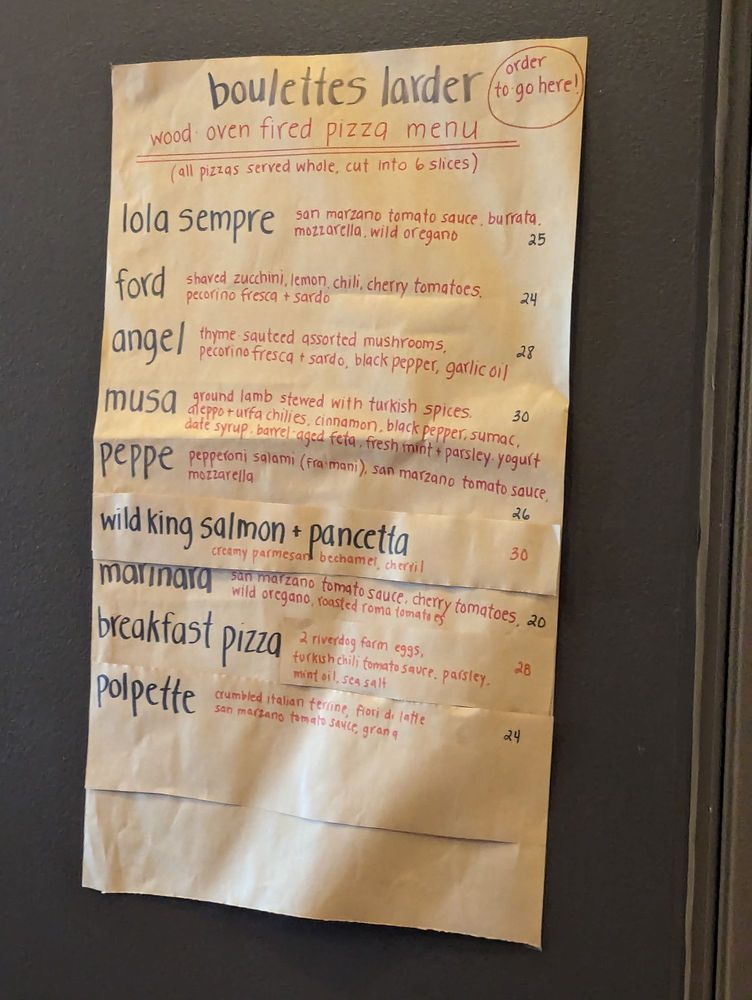 boulettes larder
order
to go here!
wood·oven fired pizza menu
(all pizzas served whole, cut into 6 slices)
lola sempre
san marzano tomato sauce, burrata,
mozzarella, wild oregano
25
ford
shaved zucchini, lemon, chili, cherry tomatoes,
pecorino fresca + sardo
24
angel
thyme sauteed assorted mushrooms,
pecorino fresca + sardo, black pepper, garlic oil
28
musa
ground lamb stewed with turkish spices.
30
aleppo + urfa chilies, cinnamon, black pepper, sumac,
date syrup. barrel-aged feta. fresh mint + parsley. yogurt
peppe
pepperoni salami (fra'mani), san marzano tomato sauce,
mozzarella
26
wild king salmon + pancetta
creamy parmesan bechamel, chervil
30
marinara
san marzano tomato sauce, cherry tomatoes,
wild oregano, roasted roma tomatoes
20
breakfast pizza
2 riverdog farm eggs,
turkish chili tomato sauce. parsley.
mint oil. sea salt
28
polpette
crumbled italian terrine, fiori di latte
san marzano tomato sauce, grana
24